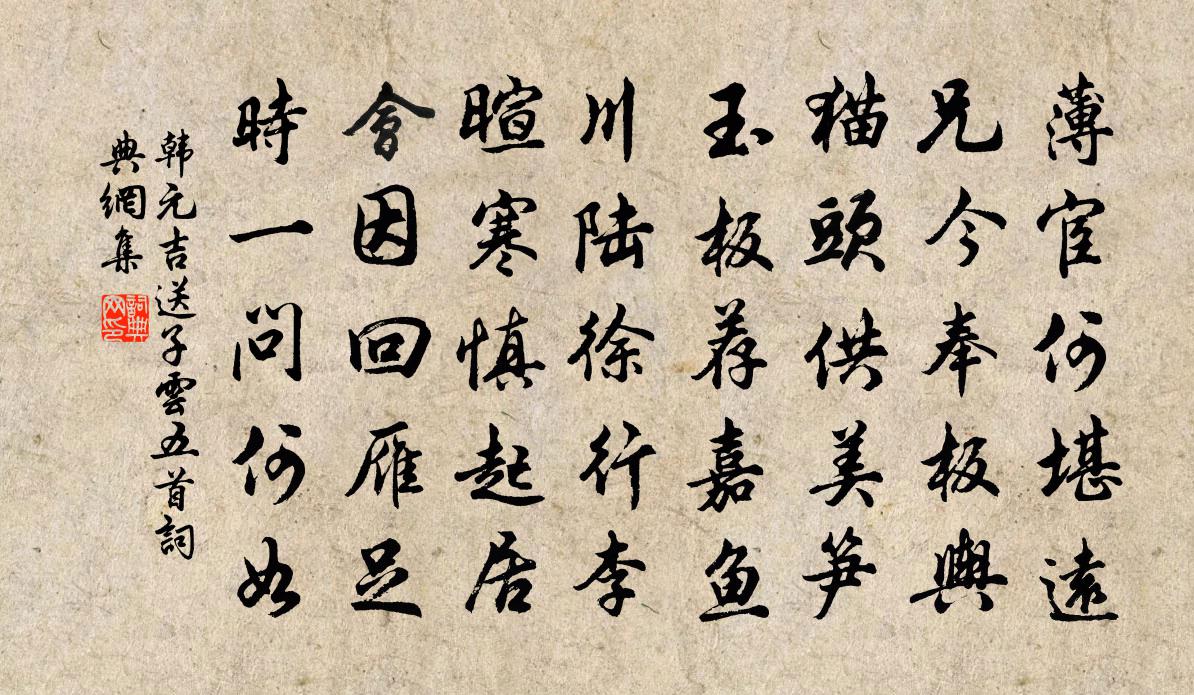 薄宦何堪遠
兄今奉板輿
猫頭供美笋
玉板荐嘉鱼
川陆徐行李
暄寒慎起居
會因回雁足
時一问何如
韩元吉送子雲五首詞
典網集
詞典网印